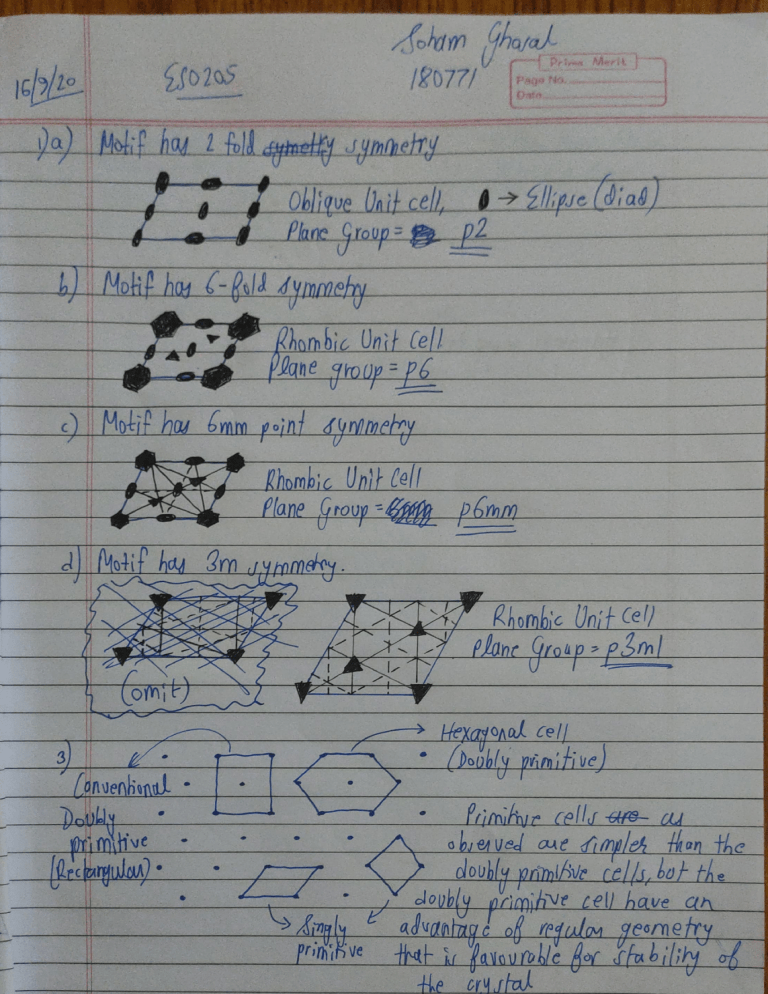 Soham Gharal
16/9/20 ESO205 180771
Prime Merit
Page No.
Date
1)a) Motif has 2 fold symmetry symmetry
Oblique Unit cell, → Ellipse (diad)
Plane Group = p2
b) Motif has 6-fold symmetry
Rhombic Unit Cell
Plane group = p6
c) Motif has 6mm point symmetry
Rhombic Unit Cell
Plane Group = p6mm
d) Motif has 3m symmetry.
Rhombic Unit Cell
Plane Group = p3m1
(omit)
3) Hexagonal cell
(Doubly primitive)
Conventional
Doubly
primitive
(Rectangular)
Primitive cells are as
observed are simpler than the
doubly primitive cells, but the
doubly primitive cell have an
advantage of regular geometry
that is favourable for stability of
the crystal
Singly
primitive